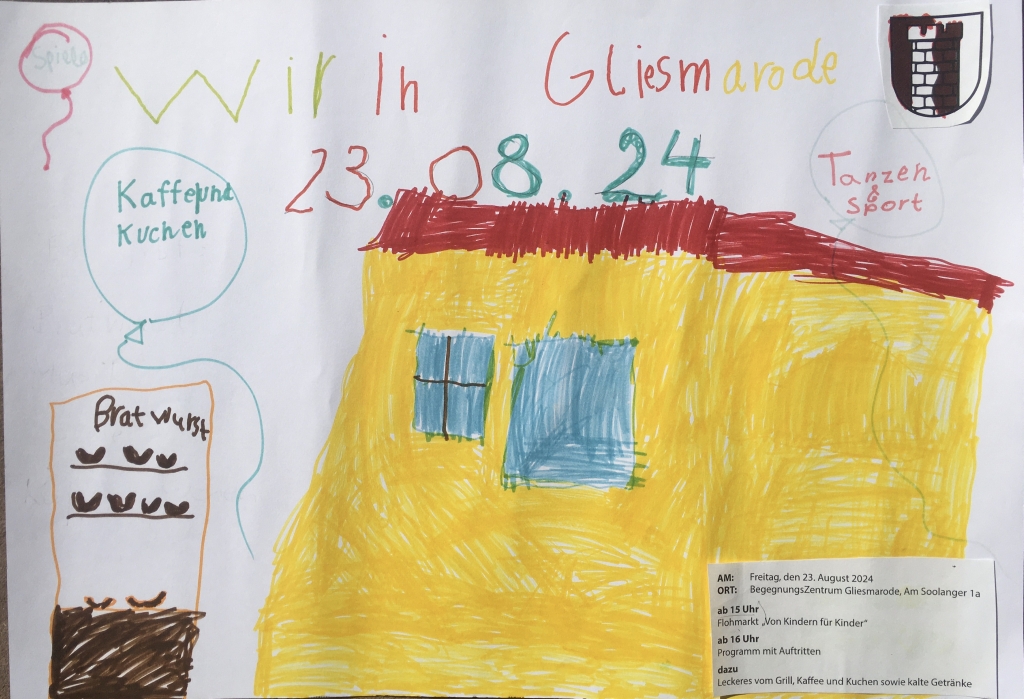 Spiele
Wir in Gliesmarode
23.08.24
Kaffeund
Kuchen
Tanzen
&
sport
Bratwurst
AM: Freitag, den 23. August 2024
ORT: BegegnungsZentrum Gliesmarode, Am Soolanger 1a
ab 15 Uhr
Flohmarkt „Von Kindern für Kinder“
ab 16 Uhr
Programm mit Auftritten
dazu
Leckeres vom Grill, Kaffee und Kuchen sowie kalte Getränke